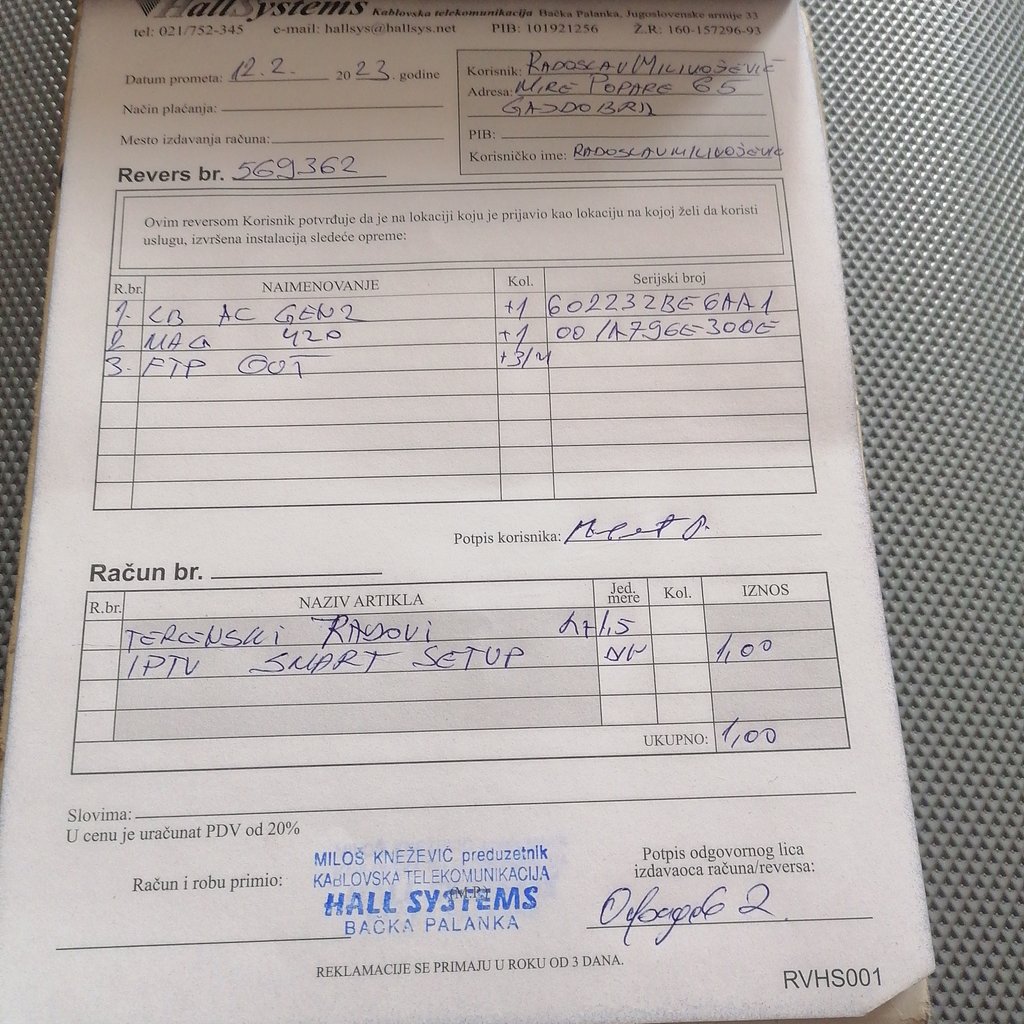 HallSystems Kablovska telekomunikacija Bačka Palanka, Jugoslovenske armije 33
tel: 021/752-345 e-mail: hallsys@hallsys.net PIB: 101921256 Ž.R: 160-157296-93
Datum prometa: 12.2. 2023. godine
Način plaćanja:
Mesto izdavanja računa:
Korisnik: RADOSLAV MILIVOŠEVIĆ
Adresa: MIRE POPARE 65
GAJDOBRA
PIB:
Korisničko ime: RADOSLAVMILIVOŠEVIĆ
Revers br. 569362
Ovim reversom Korisnik potvrđuje da je na lokaciji koju je prijavio kao lokaciju na kojoj želi da koristi
uslugu, izvršena instalacija sledeće opreme:
R.br. NAIMENOVANJE Kol. Serijski broj
1. LB AC GEN2 +1 602232BE6AA1
2 MAG 420 +1 001A796E300E
3. FTP OUT
Potpis korisnika:
Račun br.
R.br. NAZIV ARTIKLA Jed. mere Kol. IZNOS
TERENSKI RADOVI
IPTV SMART SETUP 1,00
UKUPNO: 1,00
Slovima:
U cenu je uračunat PDV od 20%
Račun i robu primio:
MILOŠ KNEŽEVIĆ preduzetnik
KABLOVSKA TELEKOMUNIKACIJA
(M.P.)
HALL SYSTEMS
BAČKA PALANKA
Potpis odgovornog lica
izdavaoca računa/reversa:
REKLAMACIJE SE PRIMAJU U ROKU OD 3 DANA.
RVHS001